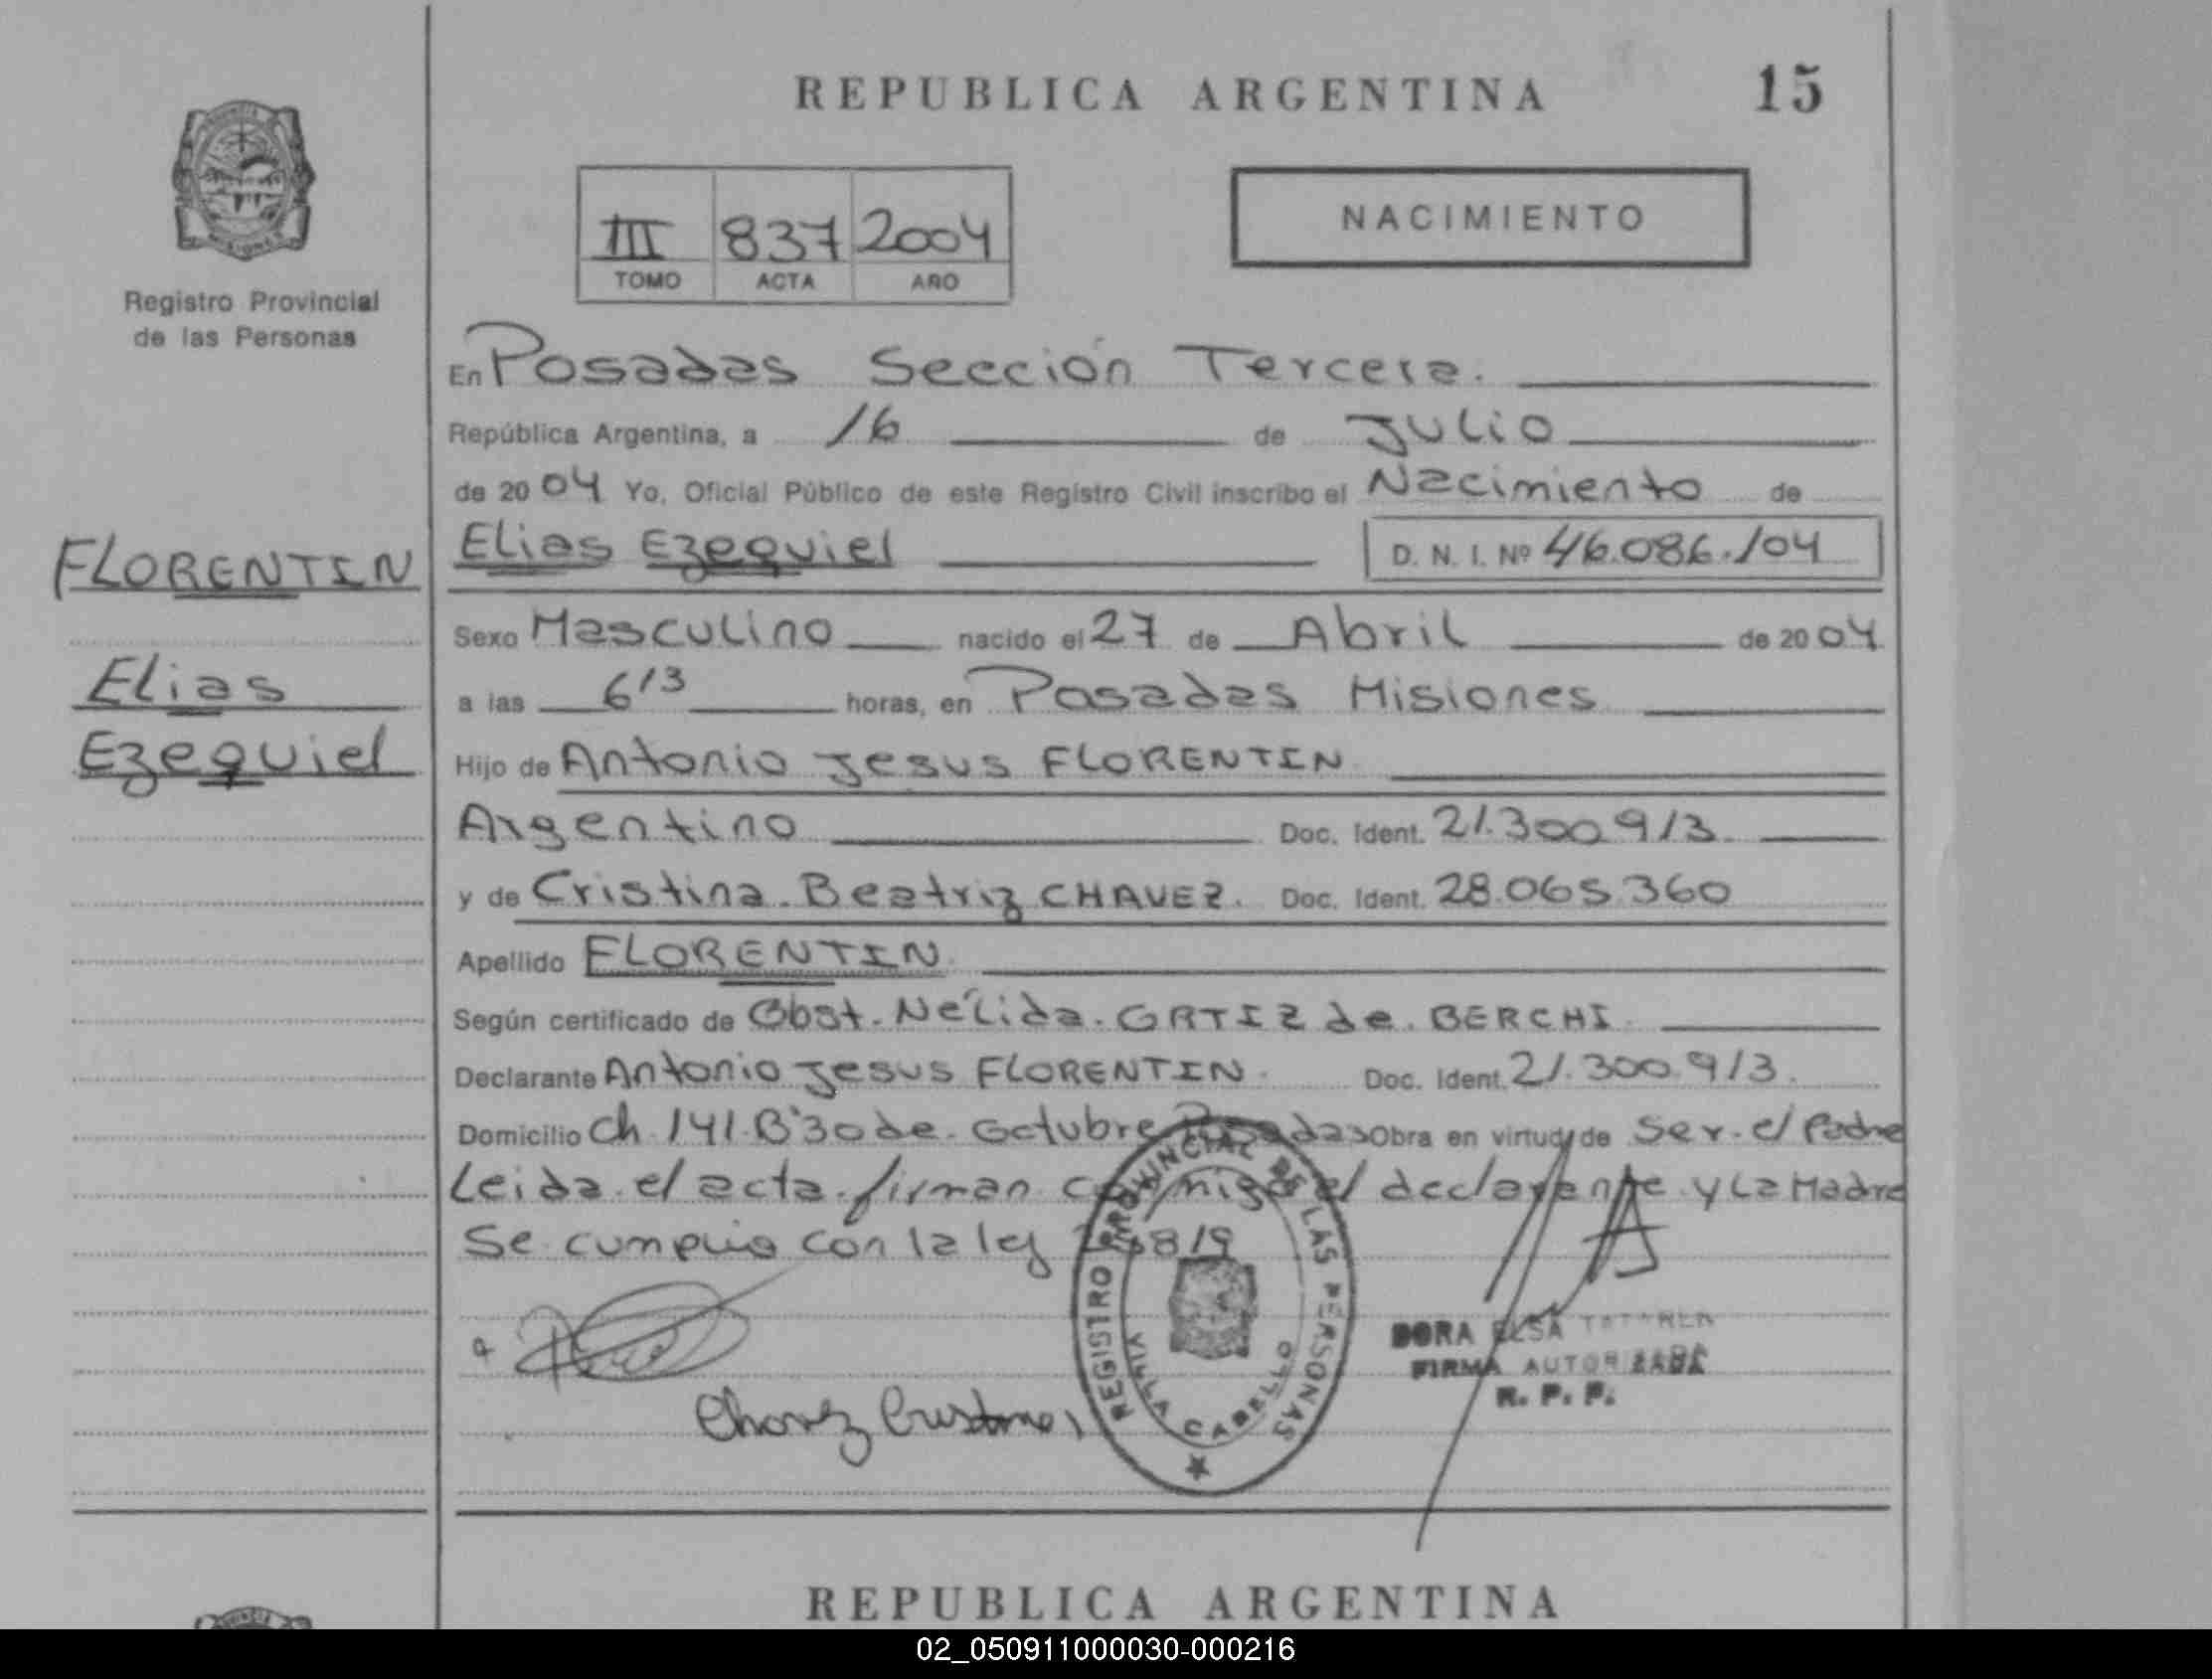 REPUBLICA ARGENTINA 15
PROVINCIA
MISIONES
Registro Provincial
de las Personas
III 837 2004
TOMO ACTA AÑO
NACIMIENTO
En Posadas Sección Tercera.
República Argentina, a 16 de Julio
de 2004 Yo, Oficial Público de este Registro Civil inscribo el Nacimiento de
Elias Ezequiel D. N. I. Nº 46.086.104
FLORENTIN
Elias
Ezequiel
Sexo Masculino nacido el 27 de Abril de 2004
a las 6 13 horas, en Posadas Misiones
Hijo de Antonio Jesus FLORENTIN
Argentino Doc. Ident. 21.300.913
y de Cristina Beatriz CHAVEZ. Doc. Ident. 28.065.360
Apellido FLORENTIN
Según certificado de Obst. Nélida ORTIZ de BERCHI
Declarante Antonio Jesus FLORENTIN Doc. Ident. 21.300.913.
Domicilio Ch 141 Bº 30 de Octubre Posadas Obra en virtud de Ser el Padre
Leida el acta firman conmigo el declarante y La Madre
Se cumplio con la ley
Chavez Cristina
REGISTRO PROVINCIAL DE LAS PERSONAS
VILLA CABELLO
DORA ELSA
FIRMA AUTORIZADA
R. P. P.
REPUBLICA ARGENTINA
02_050911000030-000216